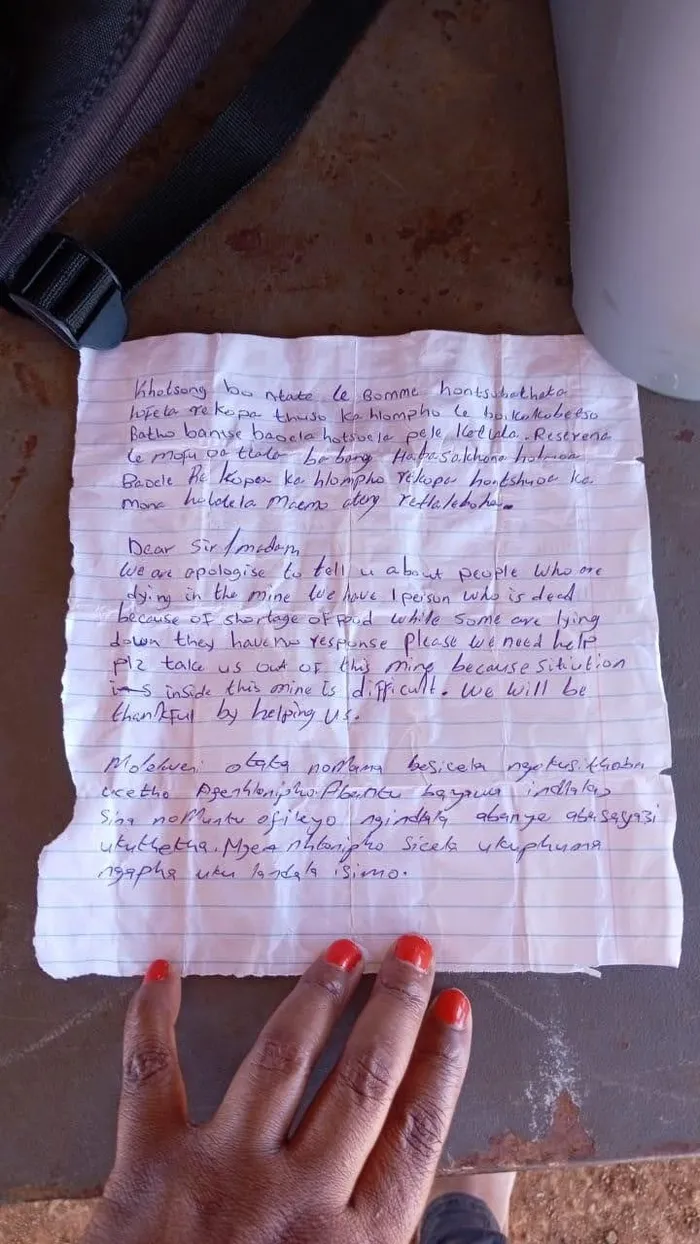 Kholsong bo ntate le Bomme hontsubatheta
lofela re kopa thuso ka hlompho le boikokobetso
Batho bantse baoela hotsoela pele ke tlala. Reserena
le mofu oa tlala ba bang Haba sa khona hobuoa
Baoele Re kopa ka hlompho re kopa hontshuoa ka
mona hobaela Maemo retlaleboha.
Dear Sir/madam
We are apologise to tell u about people who are
dying in the mine We have 1 person who is dead
because of shortage of food while some are lying
down they have no response Please we need help
plz take us out of this mine because sitiution
inside this mine is difficult. We will be
thankful by helping us.
Molelweni otata noMama besicela ngokusithoba
ucetho bayawa indlala
Sina noMuntu ofileyo ngindlala abanye abasayazi
ukuthetha. nhlonipho Sicela ukuphuma
ngapha uku landala isimo.